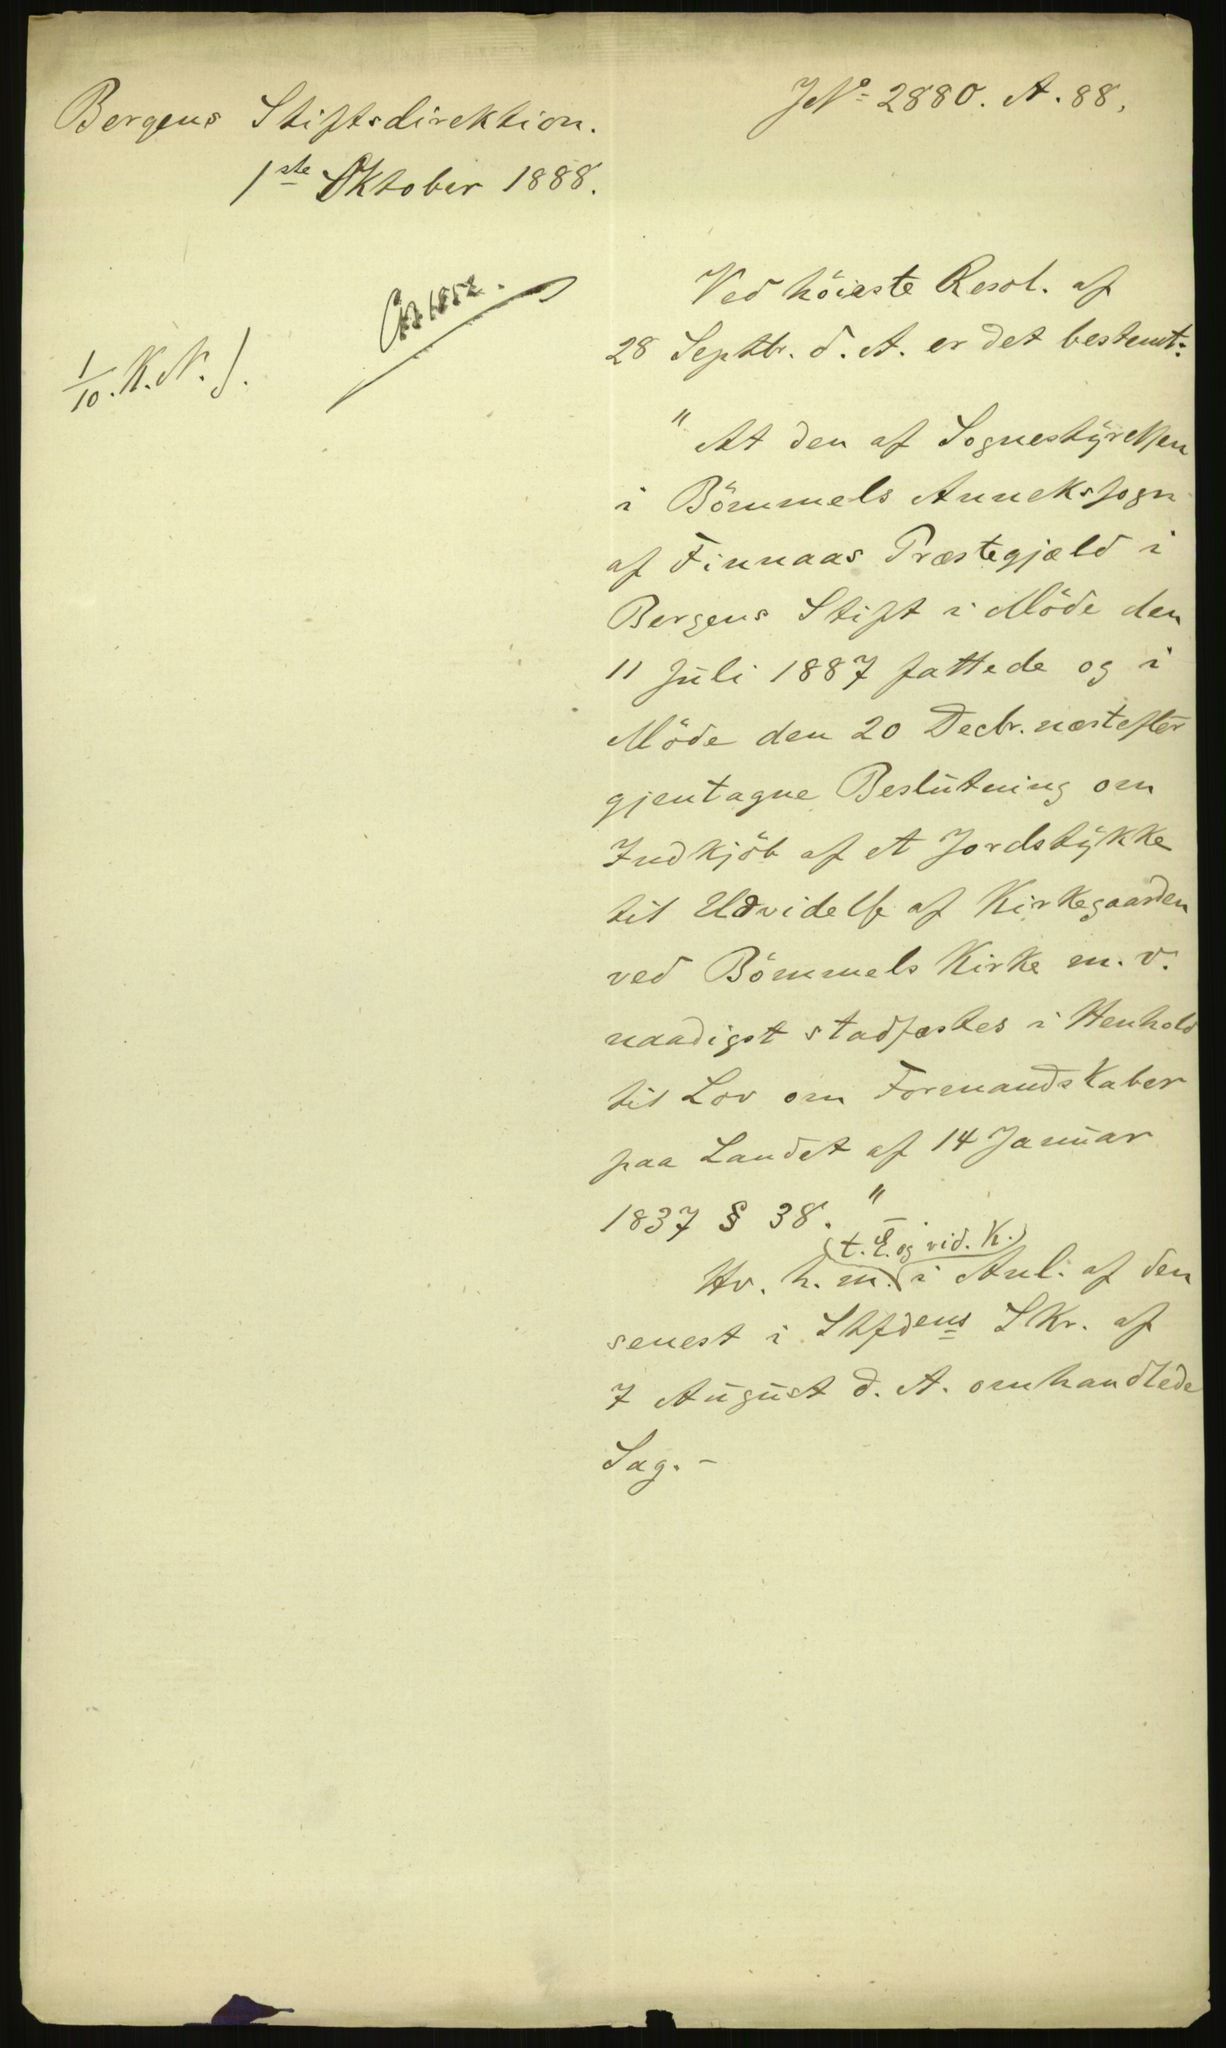 Bergens Stiftsdirektion.
1ste Oktober 1888.
JNo 2880. A. 88.
1/10. K. N. J.
Ved höieste Resol. af
28 Septbr. d. A. er det bestemt:
"At den af Sognestyrelsen
i Bömmels Annekssogn
af Finnaas Præstegjæld i
Bergens Stift i Möde den
11 Juli 1887 fattede og i
Möde den 20 Decbr. næstefter
gjentagne Beslutning om
Indkjöb af et Jordstykke
til Udvidelse af Kirkegaarden
ved Bömmels Kirke m. v.
naadigst stadfæstes i Henhold
til Lov om Formandskaber
paa Landet af 14 Januar
1837 § 38." –
(t. E. og vid. K.)
Hv. h. m. i Anl. af den
senest i Stfdens Skr. af
7 August d. A. omhandlede
Sag. –